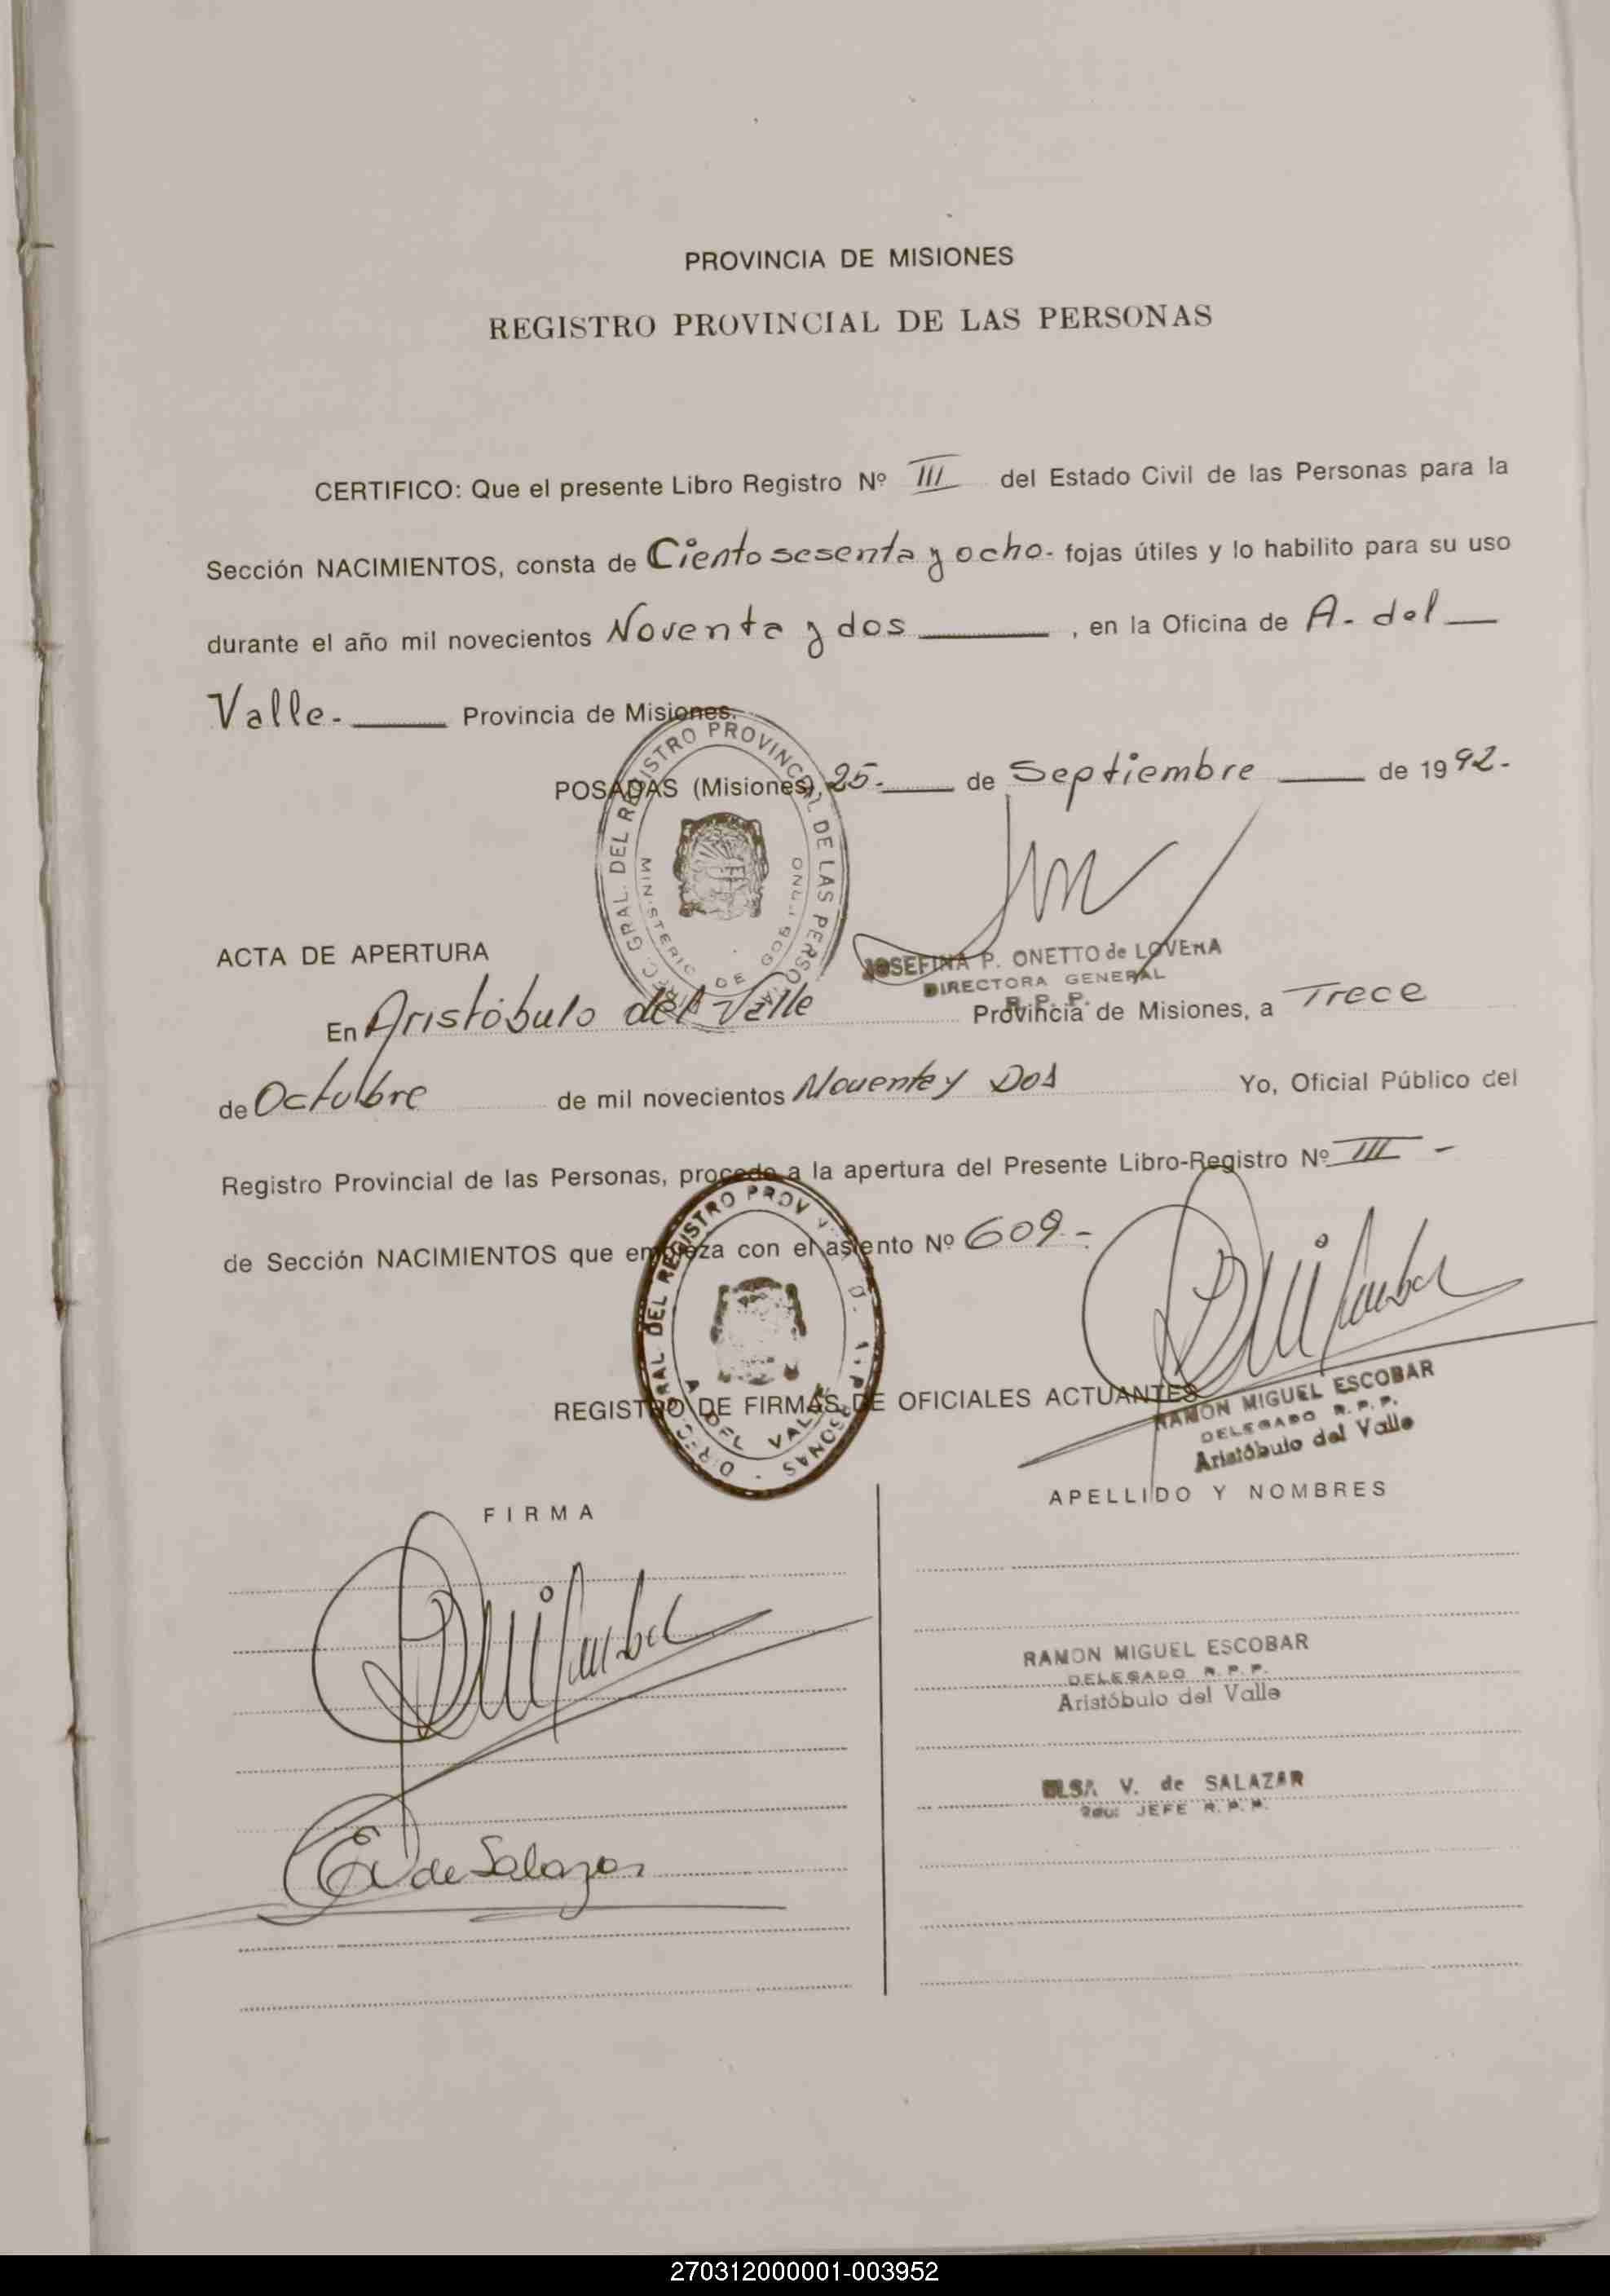 PROVINCIA DE MISIONES
REGISTRO PROVINCIAL DE LAS PERSONAS
CERTIFICO: Que el presente Libro Registro Nº III del Estado Civil de las Personas para la
Sección NACIMIENTOS, consta de Ciento sesenta y ocho- fojas útiles y lo habilito para su uso
durante el año mil novecientos Noventa y dos , en la Oficina de A. del
Valle.- Provincia de Misiones.
POSADAS (Misiones), 25- de Septiembre de 1992.-
GRAL. DEL REGISTRO PROVINCIAL DE LAS PERSONAS
MINISTERIO DE GOBIERNO
JOSEFINA P. ONETTO de LOVERA
DIRECTORA GENERAL
R. P. P.
ACTA DE APERTURA
En Aristóbulo del Valle Provincia de Misiones, a Trece
de Octubre de mil novecientos Noventa y Dos Yo, Oficial Público del
Registro Provincial de las Personas, procedo a la apertura del Presente Libro-Registro Nº III -
de Sección NACIMIENTOS que empieza con el asiento Nº 609-
DIREC. GRAL. DEL REGISTRO PROV PERSONAS
A DEL VALLE
RAMON MIGUEL ESCOBAR
DELEGADO R. P. P.
Aristóbulo del Valle
REGISTRO DE FIRMAS DE OFICIALES ACTUANTES
FIRMA
APELLIDO Y NOMBRES
RAMON MIGUEL ESCOBAR
DELEGADO R. P. P.
Aristóbulo del Valle
ELSA V. de SALAZAR
JEFE R. P. P.
EV de Salazar
270312000001-003952